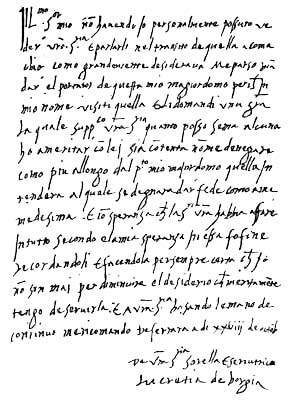 Ill.mo S.or mio nõ havendo io personalmente possuto ve
der vrã S.ria et parlarli nel transito de quella a
como grandemente desiderava me parso
dar el portator de questa mio magiordomo
mio nome visiti quella et li domandi una gra
la quale supp.co vrã S.ria quanto posso senza alcuna
sia contenta nõ me denegare
como piu allongo dal p.to mio majordomo quella in
tendera al quale se degnara dar fede como a me
medesima. Et io speranza la S.ria vrã habbia affare
in tutto secondo e la mia speranza
recordandoli et facendola per sempre certa io
nõ son mai per diminuire el desiderio
tengo de servirla. Et a vrã S.ria basando le mano de
continuo me ricomando de ferrara a di xxviij de
De vrã S.ria sorella et servitrice
Lucretia de borgia